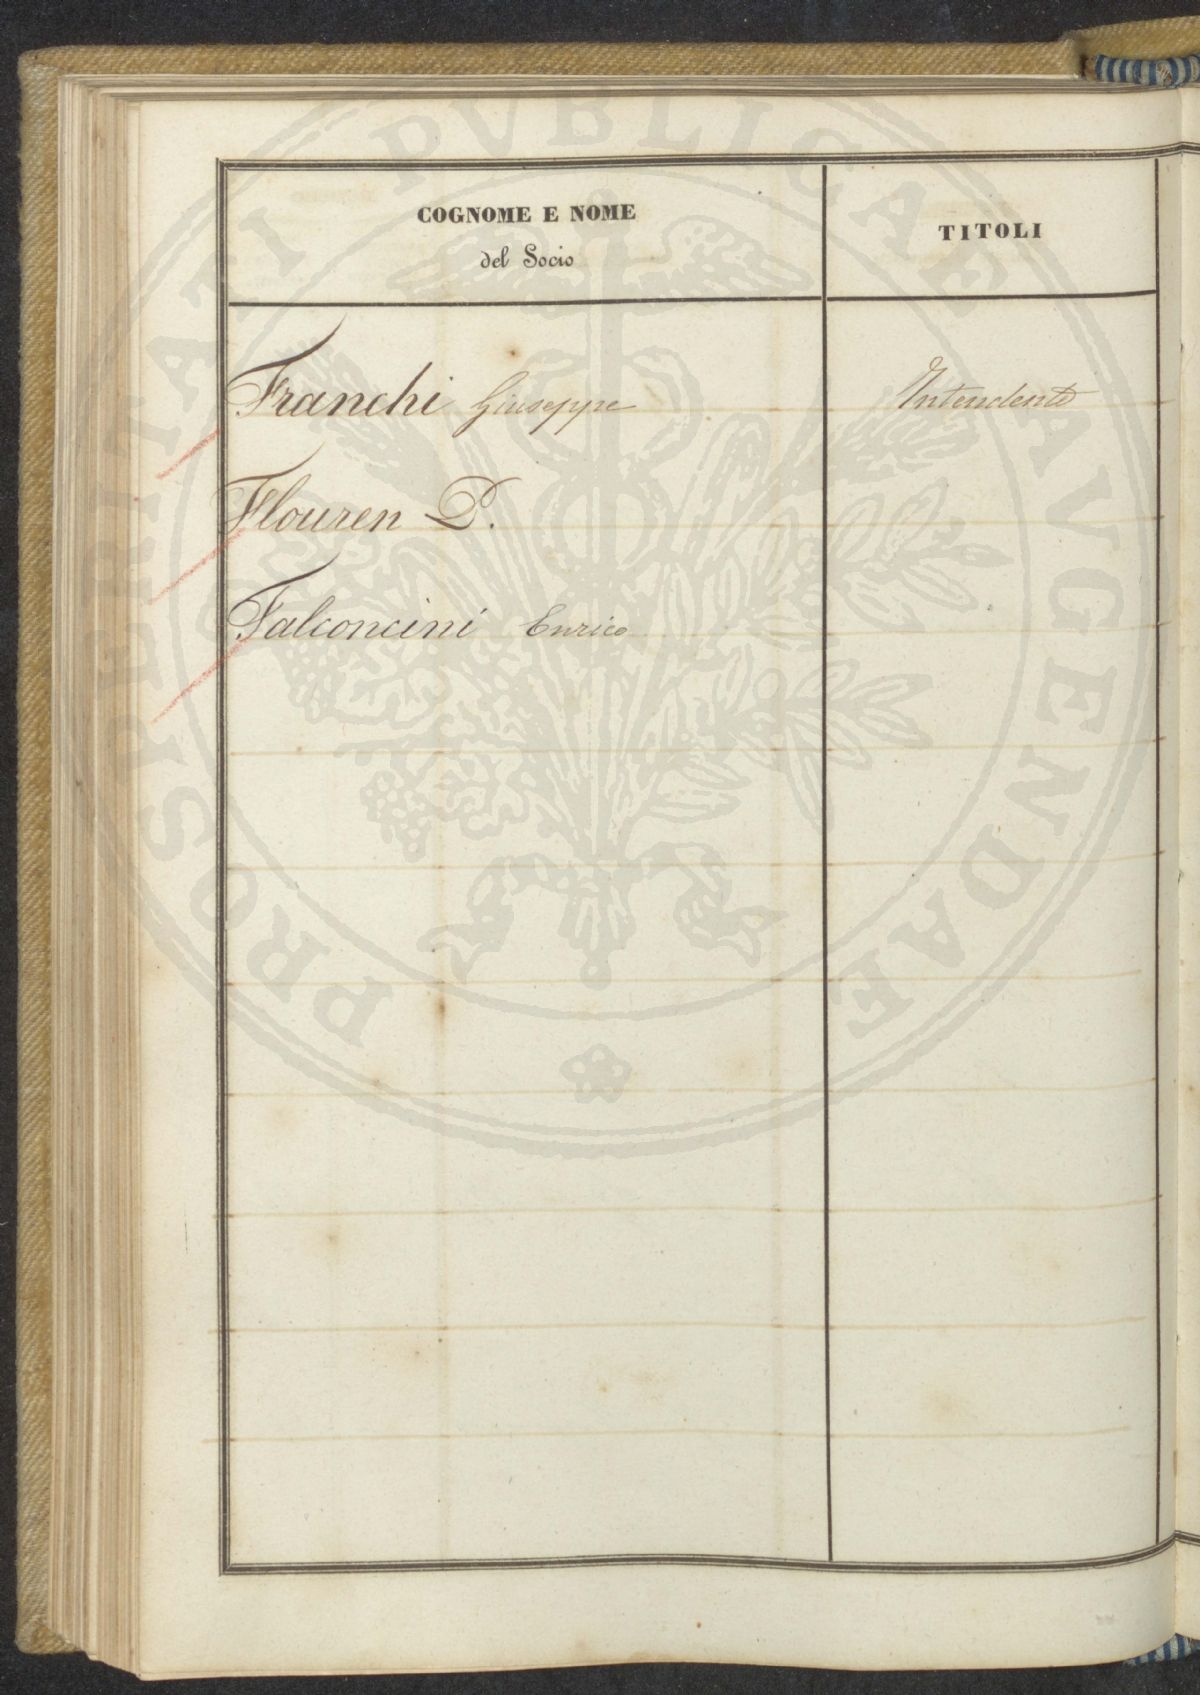 COGNOME E NOME
del Socio
TITOLI
Franchi Giuseppe
Intendente
Flouren P.
Falconcini Enrico
PROSPERITATI PVBLICAE AVGENDAE